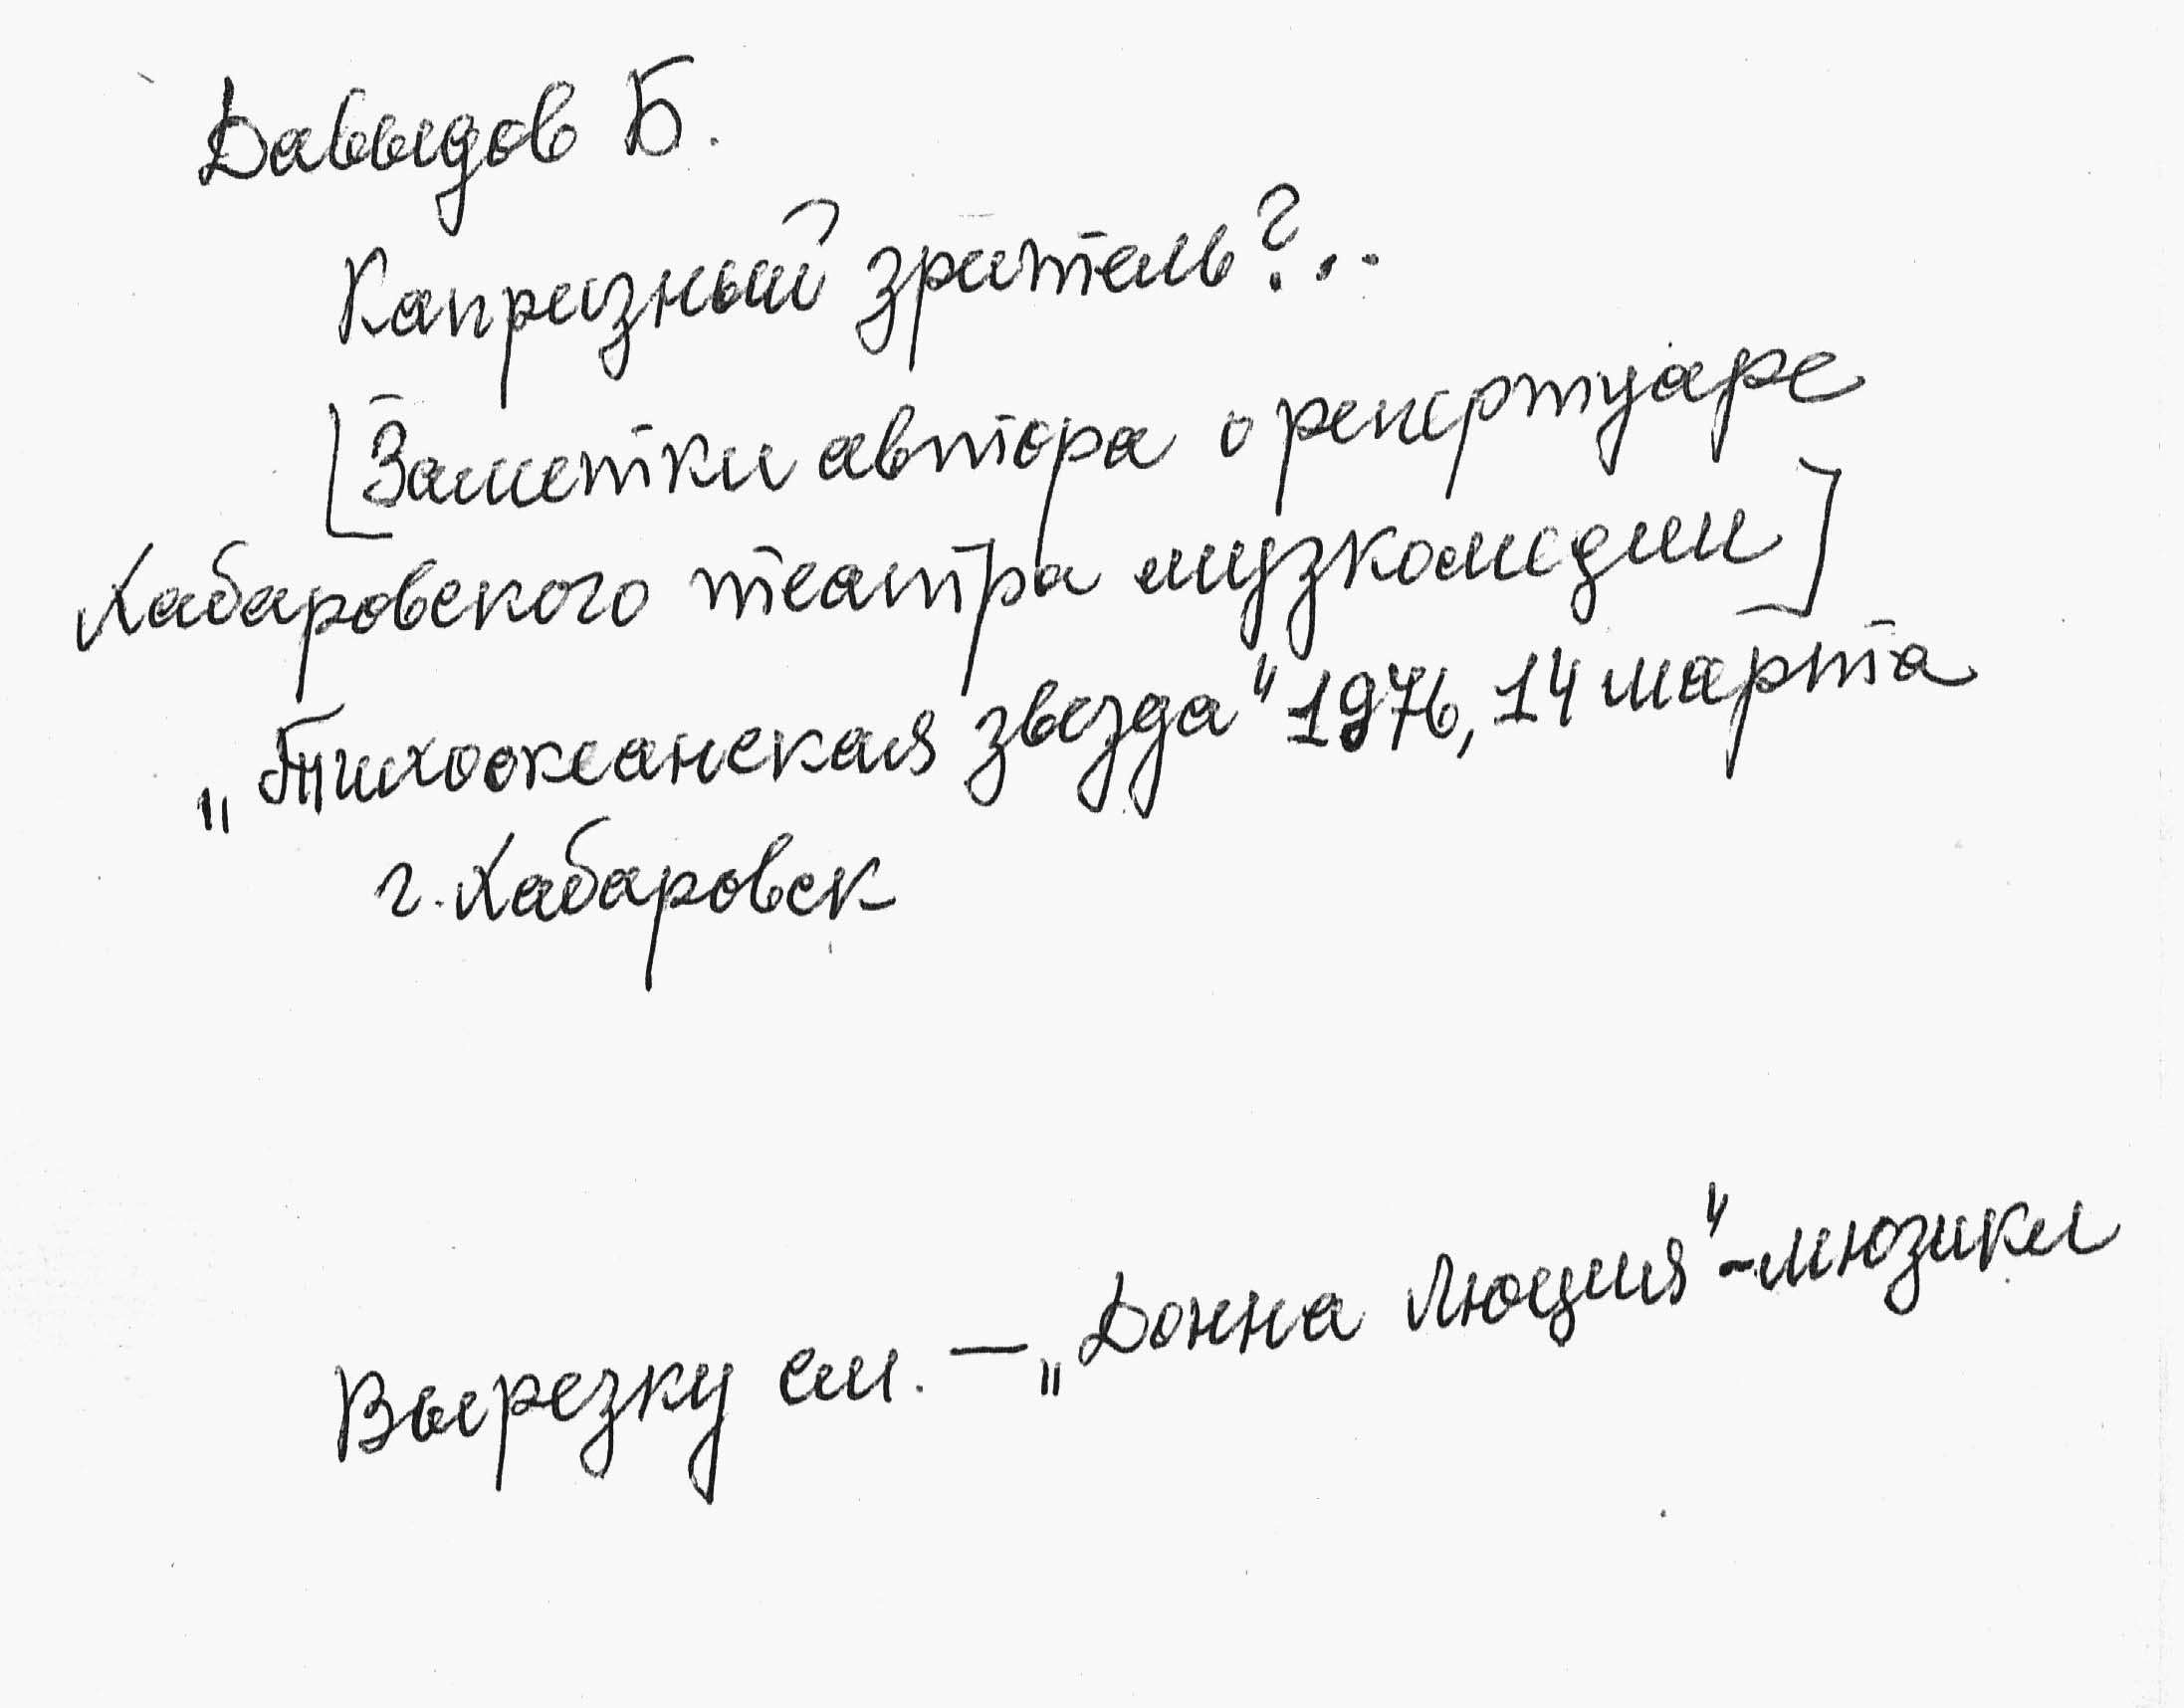 Давыдов Б.
Капризный зритель?..
[Заметки автора о репертуаре
Хабаровского театра музкомедии]
„Тихоокеанская звезда" 1976, 14 марта
г. Хабаровск
Вырезку см. – „Донна Люция" - мюзиклы